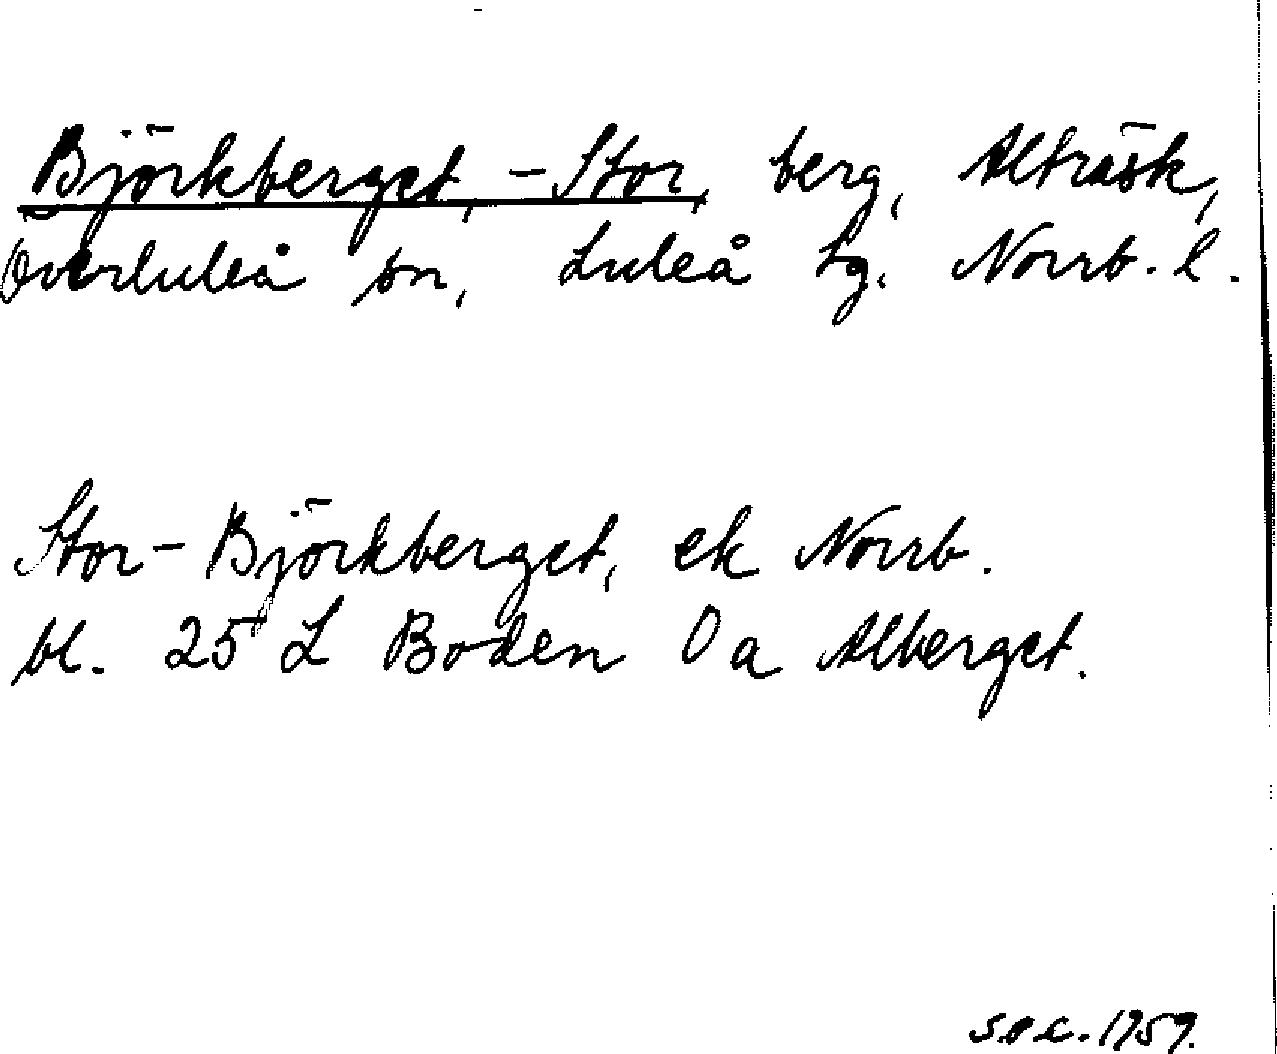 Björkberget, -Stor, berg, Alträsk,
Överluleå sn, Luleå tg. Norrb. l.
Stor-Björkberget, ek Norrb.
bl. 25 L Boden O a Alberget.
1959.